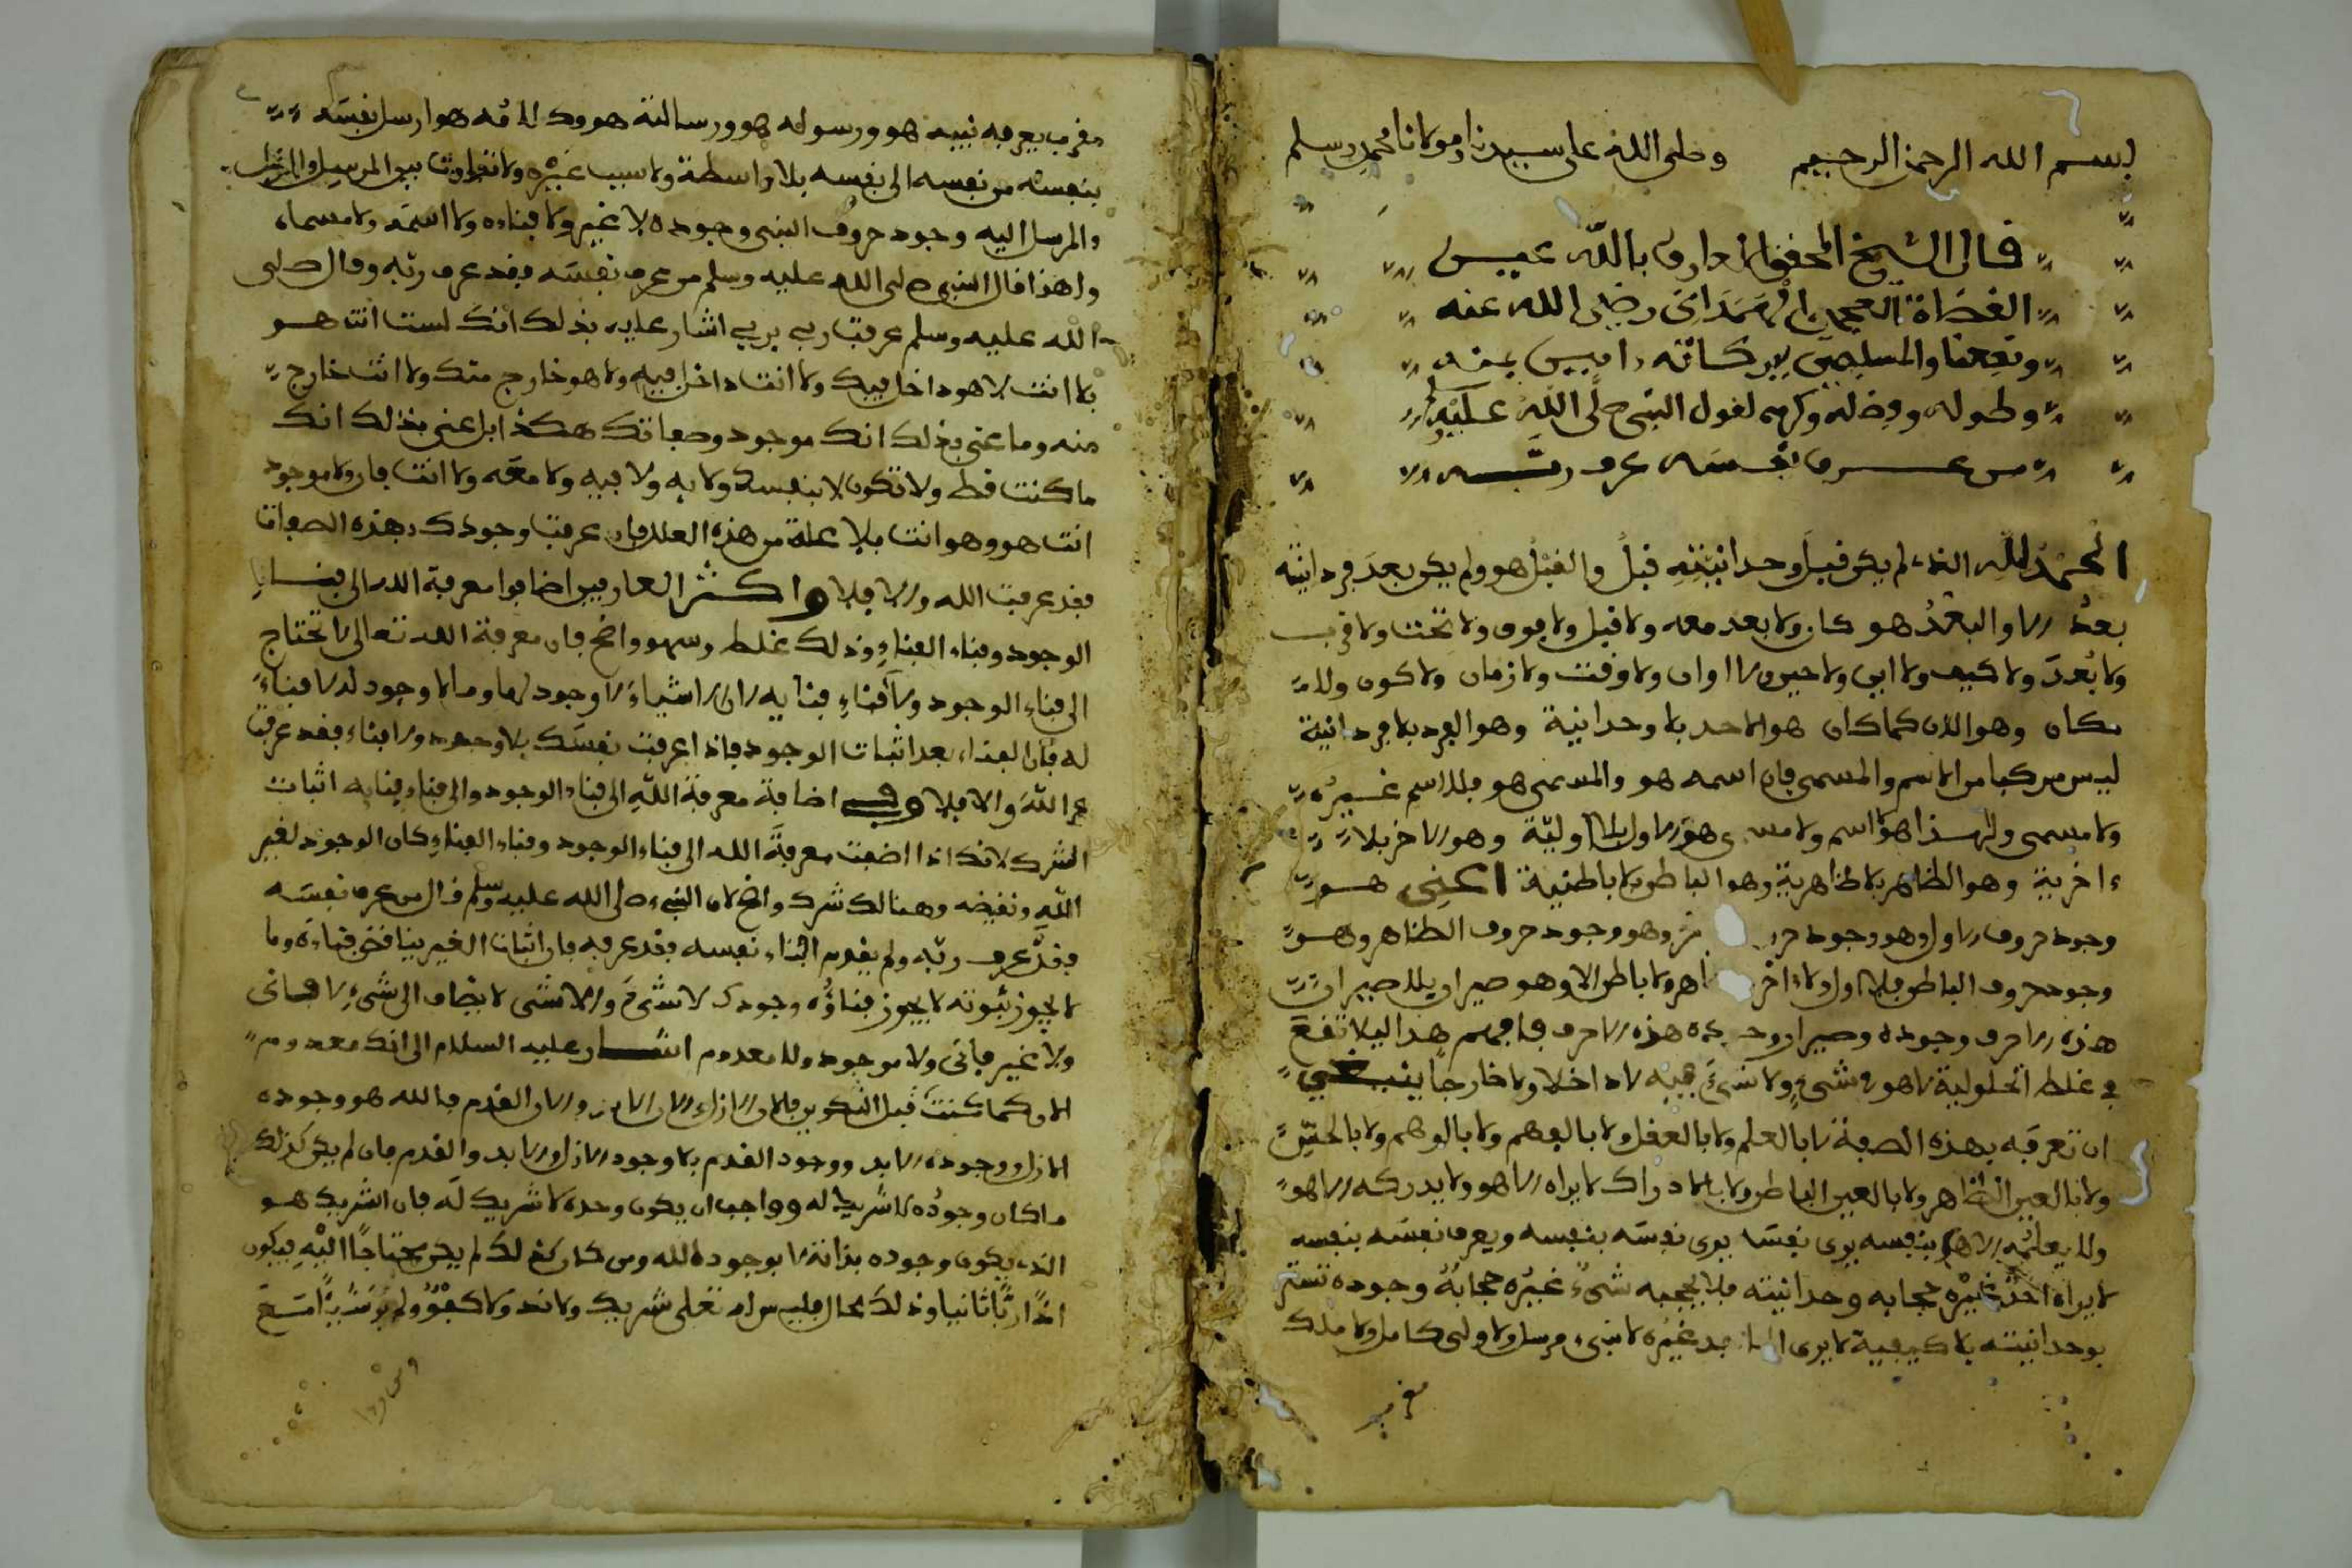 بسم الله الرحمن الرحيم وصلى الله على سيدنا ومولانا محمد وسلم
قال الشيخ المحقق العارف بالله عين
القضاة العجمي الهمداني رضي الله عنه
ونفعنا والمسلمين ببركاته ءامين بمنه
وطوله وفضله وكرمه لقول النبي صلى الله عليه وسلم
من عرف نفسه عرف ربه
الحمد لله الذي لم يكن قبل وحدانيته قبل والقبل هو ولم يكن بعد فردانيته
بعد الا والبعد هو كان ولا بعد معه ولا قبل ولا فوق ولا تحت ولا قرب
ولا بعد ولا كيف ولا اين ولا حين ولا اوان ولا وقت ولا زمان ولا كون ولا
مكان وهو الان كما كان هو الاحد بلا وحدانية وهو الفرد بلا فردانية
ليس مركبا من الاسم والمسمى فان اسمه هو والمسمى هو فلا اسم غيره
ولا مسمى ولهذا هو اسم ولا مسمى هو الاول بلا اولية وهو الاخر بلا
ءاخرية وهو الظاهر بلا ظاهرية وهو الباطن بلا باطنية اعني هو
وجود حروف الاول وهو وجود وهو وجود حروف الظاهر وهو
وجود حروف الباطن فلا اول ولا ءاخر ولا باطن الا وهو صيران بلا صيران
هذه الاحرف وجوده وصيران وجوده هذه الاحرف فافهم هذا ليلا تقع
في غلط الحلولية لا هو في شيء ولا شيء فيه لا داخلا ولا خارجا ينبغي
ان تعرفه بهذه الصفة لا بالعلم ولا بالعقل ولا بالفهم ولا بالوهم ولا بالحس
ولا بالعين الظاهر ولا بالعين الباطن ولا بالادراك لا يراه الا هو ولا يدركه الا هو
ولا يعلمه الا هو بنفسه يرى نفسه يرى نفسه بنفسه ويعرف نفسه بنفسه
لا يراه احد غيره حجابه وحدانيته فلا يحجبه شيء غيره حجابه وجوده تستر
بوحدانيته بلا كيفية لا يرى احد غيره لا نبي مرسل ولا ولي كامل ولا ملك
مقرب
مقرب يعرفه نبيه هو ورسوله هو ورسالته هو وكلامه هو ارسل نفسه
بنفسه من نفسه الى نفسه بلا واسطة ولا سبب غيره ولا تفاوت بين المرسل والمرسل
والمرسل اليه وجود حروف النبي وجوده لا غير ولا فناءه ولا اسمه ولا مسماه
ولهذا قال النبي صلى الله عليه وسلم من عرف نفسه فقد عرف ربه وقال صلى
الله عليه وسلم عرفت ربي بربي اشار عليه بذلك انك لست انت هو
بلا انت لا هو داخل فيك ولا انت داخل فيه ولا هو خارج منك ولا انت خارج
منه وما عنى بذلك انك موجود وصفاتك هكذا بل عنى بذلك انك
ما كنت قط ولا تكون لا بنفسك ولا به ولا فيه ولا معه ولا انت فان ولا موجود
انت هو وهو انت بلا علة من هذه العلل فان عرفت وجودك بهذه الصفات
فقد عرفت الله والا فلا واكثر العارفين اضافوا معرفة الله الى فناء
الوجود وفناء الفناء وذلك غلط وسهو واضح فان معرفة الله تعالى لا تحتاج
الى فناء الوجود ولا فناء فنايه لان الاشياء لا وجود لها وما لا وجود له لا فناء
له فان الفناء بعد اثبات الوجود فاذا عرفت نفسك بلا وجود ولا فناء فقد عرفت
الله والا فلا وفي اضافة معرفة الله الى فناء الوجود والى فناء فنايه اثبات
الشرك لانك اذا اضفت معرفة الله الى فناء الوجود وفناء الفناء كان الوجود لغير
الله ونقيضه وهنالك شرك واضح لان النبي صلى الله عليه وسلم قال من عرف نفسه
فقد عرف ربه ولم يقل من افناء نفسه فقد عرفه فان اثبات الغير ينافي فناءه وما
لا يجوز ثبوته لا يجوز فناؤه وجودك لا شيء والا شي لا يضاف الى شيء لا فاني
ولا غير فاني ولا موجود ولا معدوم اشار عليه السلام الى انك معدوم
الان كما كنت قبل التكوين فالان الازل والان الابد والان القدم فالله هو وجوده
الازل ووجوده الابد ووجود القدم بلا وجود الازل والابد والقدم فان لم يكن كذلك
ما كان وجوده لا شريك له وواجب ان يكون وحده لا شريك له فان الشريك هو
الذي يكون وجوده بذاته لا بوجود الله ومن كان كذلك لم يكن محتاجا اليه فيكون
اذا ربا ثانيا وذلك محال فليس لله تعلى شريك ولا ند ولا كفؤ ولم